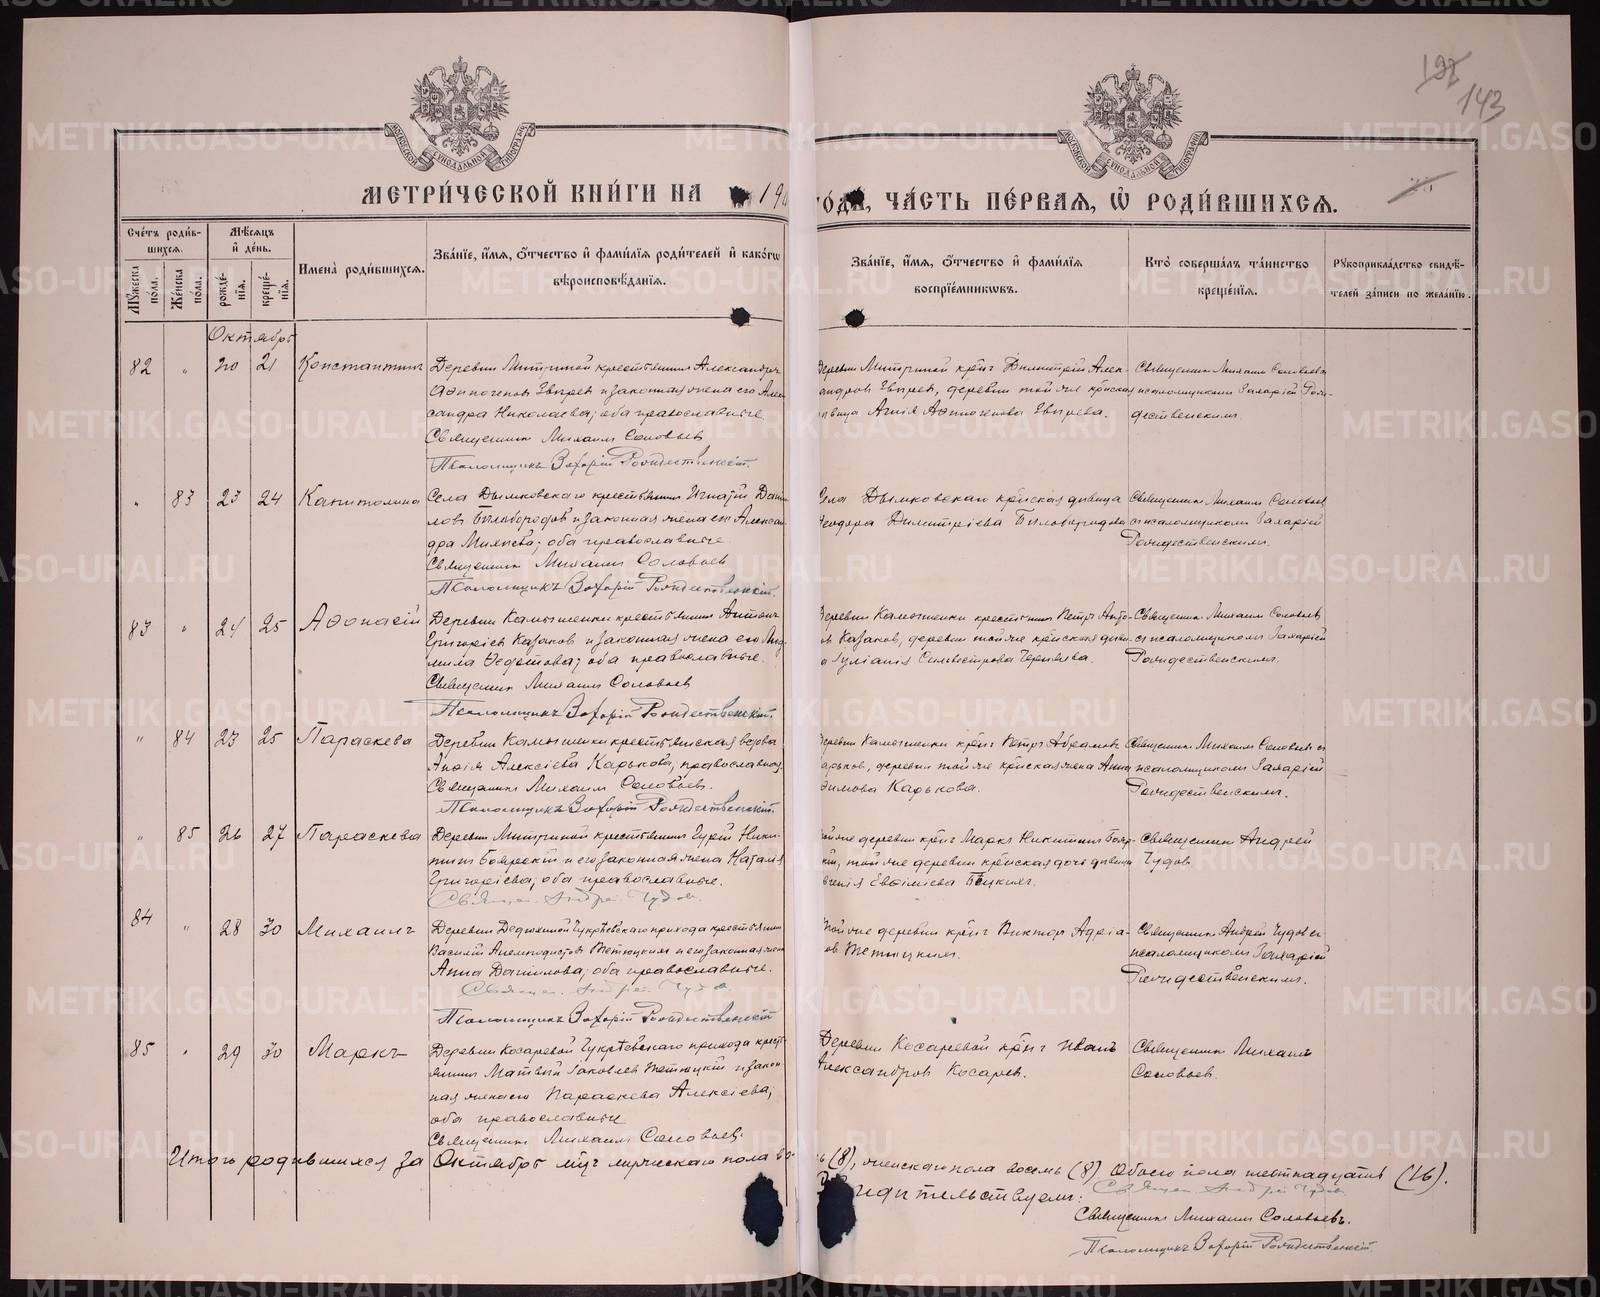 198
143
МОСКОВСКОЙ СУНОДАЛЬНОЙ ТИПОГРАФІИ
МОСКОВСКОЙ СУНОДАЛЬНОЙ ТИПОГРАФІИ
МЕТРИ́ЧЕСКОЙ КНИ́ГИ НА 190
ГО́ДА, ЧА́СТЬ ПЕ́РВАЯ, Ѽ РОДИ́ВШИХСЯ.
Сче́тъ роди́в-
шихся.
Мѣ́сяцъ
и҆ де́нь.
Мꙋ́жеска по́ла.
Же́нска по́ла.
рожде́-
нїя.
креще́-
нїя.
И҆мена̀ роди́вшихся.
Зва́нїе, и҆́мя, ѻ҆́тчество и҆ фами́лїя роди́телей и҆ како́гѡ
вѣроисповѣ́данїя.
Зва́нїе, и҆́мя, ѻ҆́тчество и҆ фами́лїя
воспрїе́мникѡвъ.
Кто̀ соверша́лъ та́инство
креще́нїя.
Рꙋкоприкла́дство свидѣ́-
телей за́писи по жела́нїю.
Октябрь
82 " 20 21 Константинъ
Деревни Митиной крестьянинъ Александръ
Аѳиногеновъ Звѣревъ и законная жена его Алек
сандра Николаева; оба православные
Священникъ Михаилъ Соловьевъ
Псаломщикъ Захарій Рождественскій.
Деревни Митиной кр-нъ Димитрій Алек-
сандровъ Звѣревъ, деревни той же кр-нская
дѣвица Агнія Аѳиногенова Звѣрева.
Священникъ Михаилъ Соловьевъ
съ псаломщикомъ Захаріей Рож-
дественскимъ.
" 83 23 24 Капитолина
Села Дымковскаго крестьянинъ Игнатій Дани
ловъ Бѣлобородовъ и законная жена его Алексан
дра ; оба православные
Священникъ Михаилъ Соловьевъ
Псаломщикъ Захарій Рождественскій.
Села Дымковскаго кр-нская дѣвица
Ѳеодора Димитріева Бѣлобородова
Священникъ Михаилъ Соловьевъ
съ псаломщикомъ Захаріей
Рождественскимъ.
83 " 24 25 Аѳонасій
Деревни Камышенки крестьянинъ Антонъ
Григорьевъ Казаковъ и законная жена его Люд
мила Ѳедотова; оба православные.
Священникъ Михаилъ Соловьевъ
Псаломщикъ Захарій Рождественскій.
Деревни Камышенки крестьянинъ Петръ Анто-
въ Казаковъ, деревни той же кр-нская дѣви
а Іуліанія Сильвестрова .
Священникъ Михаилъ Соловьевъ
съ псаломщикомъ Захаріей
Рождественскимъ.
" 84 23 25 Параскева
Деревни Камышенки крестьянская вдова
Алексіева Карькова, православная
Священникъ Михаилъ Соловьевъ.
Псаломщикъ Захарій Рождественскій.
Деревни Камышенки кр-нъ Петръ Абрамовъ
Карьковъ, деревни той же кр-нская жена Анна
имова Карькова.
Священникъ Михаилъ Соловьевъ съ
псаломщикомъ Захаріей
Рождественскимъ.
" 85 26 27 Параскева
Деревни Митиной крестьянинъ Гурій Ники-
тинъ Боярскій и его законная жена Наталія
Григоріева, оба православные.
Священ. Андрей Чудовъ
той же деревни кр-нъ Маркъ Никитинъ Бояр-
кій, той же деревни кр-нская дочь дѣвица
Евѳиміева .
Священникъ Андрей
Чудовъ
84 " 28 30 Михаилъ
Деревни Дедюхиной Чукрѣевскаго прихода крестьянинъ
Василій Анемподистовъ Тетюцкихъ и его законная жена
Анна Данилова, оба православные.
Священ. Андрей Чудовъ
Псаломщикъ Захарій Рождественскій
Той же деревни кр-нъ Викторъ Адріа-
овъ Тетюцкихъ.
Священникъ Андрей Чудовъ съ
псаломщикомъ Захаріей
Рождественскимъ.
85 " 29 30 Маркъ
Деревни Косаревой Чукрѣевскаго прихода кресть-
янинъ Матвѣй Іаковлевъ Тетюцкій и закон
ная жена его Параскева Алексіева;
оба православные
Священникъ Михаилъ Соловьевъ.
Деревни Косаревой кр-нъ Иванъ
Александровъ Косаревъ.
Священникъ Михаилъ
Соловьевъ.
Итого родившихся за Октябрь мц-ъ мужескаго пола во
ь (8), женскаго пола восемь (8) Обоего пола шестнадцать (16).
идѣтельствуемъ: Священ. Андрей Чудовъ
Священникъ Михаилъ Соловьевъ.
Псаломщикъ Захарій Рождественскій.
METRIKI.GASO-URAL.RU